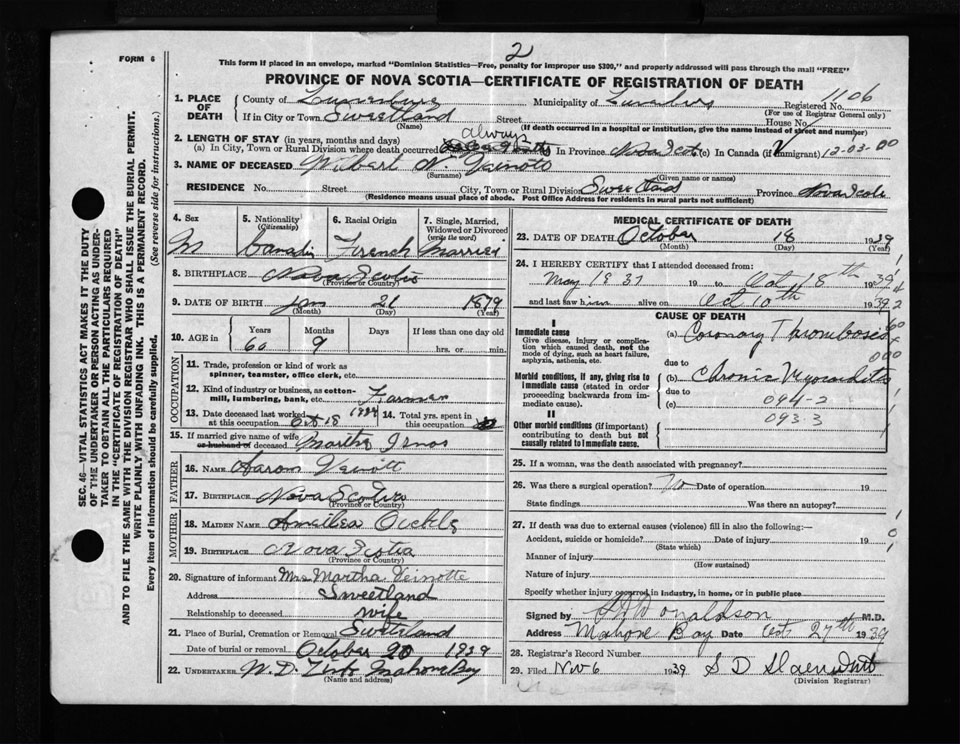 2
FORM 6
This form if placed in an envelope, marked "Dominion Statistics—Free, penalty for improper use $300," and properly addressed will pass through the mail "FREE"
PROVINCE OF NOVA SCOTIA—CERTIFICATE OF REGISTRATION OF DEATH
SEC. 46—VITAL STATISTICS ACT MAKES IT THE DUTY
OF THE UNDERTAKER OR PERSON ACTING AS UNDER-
TAKER TO OBTAIN ALL THE PARTICULARS REQUIRED
IN THE "CERTIFICATE OF REGISTRATION OF DEATH"
AND TO FILE THE SAME WITH THE DIVISION REGISTRAR WHO SHALL ISSUE THE BURIAL PERMIT.
WRITE PLAINLY WITH UNFADING INK. THIS IS A PERMANENT RECORD.
Every item of information should be carefully supplied. (See reverse side for instructions.)
1. PLACE OF DEATH County of Lunenburg Municipality of Lunenburg Registered No. 1106
(For use of Registrar General only)
If in City or Town Sweetland Street House No.
(Name) (If death occurred in a hospital or institution, give the name instead of street and number)
2. LENGTH OF STAY (in years, months and days) always
(a) In City, Town or Rural Division where death occurred (b) In Province Nova Scotia (c) In Canada (if immigrant) 12-03-00
3. NAME OF DECEASED Wilbert N. Veinotte
(Surname) (Given name or names)
RESIDENCE No. Street City, Town or Rural Division Sweetland Province Nova Scotia
(Residence means usual place of abode. Post Office Address for residents in rural parts not sufficient)
4. Sex M
5. Nationality (Citizenship) Canadian
6. Racial Origin French
7. Single, Married, Widowed or Divorced (write the word) Married
8. BIRTHPLACE Nova Scotia
(Province or Country)
9. DATE OF BIRTH Jan 21 1879
(Month) (Day) (Year)
10. AGE in Years Months Days If less than one day old
60 9 hrs. or min.
OCCUPATION
11. Trade, profession or kind of work as spinner, teamster, office clerk, etc.
12. Kind of industry or business, as cotton-mill, lumbering, bank, etc. Farmer
13. Date deceased last worked at this occupation Oct 18 1939 14. Total yrs. spent in this occupation
15. If married give name of wife or husband of deceased Martha Ernst
FATHER
16. NAME Aaron Veinott
17. BIRTHPLACE Nova Scotia
MOTHER
18. MAIDEN NAME Oickle
19. BIRTHPLACE Nova Scotia
(Province or Country)
20. Signature of informant Mrs Martha Veinotte
Address Sweetland
Relationship to deceased wife
21. Place of Burial, Cremation or Removal Sweetland
Date of burial or removal October 20 1939
22. UNDERTAKER W. D. Zinck Mahone Bay
(Name and address)
MEDICAL CERTIFICATE OF DEATH
23. DATE OF DEATH October 18 1939
(Month) (Day) (Year)
24. I HEREBY CERTIFY that I attended deceased from
May 1937 19 to Oct 18th 1939
and last saw him alive on Oct 10th 1939
CAUSE OF DEATH
I
Immediate cause
Give disease, injury or complication which caused death, not the mode of dying, such as heart failure, asphyxia, asthenia, etc.
(a) Coronary Thrombosis
due to
Morbid conditions, if any, giving rise to immediate cause (stated in order proceeding backwards from immediate cause).
(b) Chronic Myocarditis
due to
(c) 094-2
093-3
II
Other morbid conditions (if important) contributing to death but not causally related to immediate cause.
25. If a woman, was the death associated with pregnancy?
26. Was there a surgical operation? No Date of operation 19
State findings Was there an autopsy?
27. If death was due to external causes (violence) fill in also the following:—
Accident, suicide or homicide? Date of injury 19
(State which)
Manner of injury
(How sustained)
Nature of injury
Specify whether injury occurred in industry, in home, or in public place
Signed by Donaldson M.D.
Address Mahone Bay Date Oct 27th 1939
28. Registrar's Record Number
29. Filed Nov 6 1939 S D
(Division Registrar)